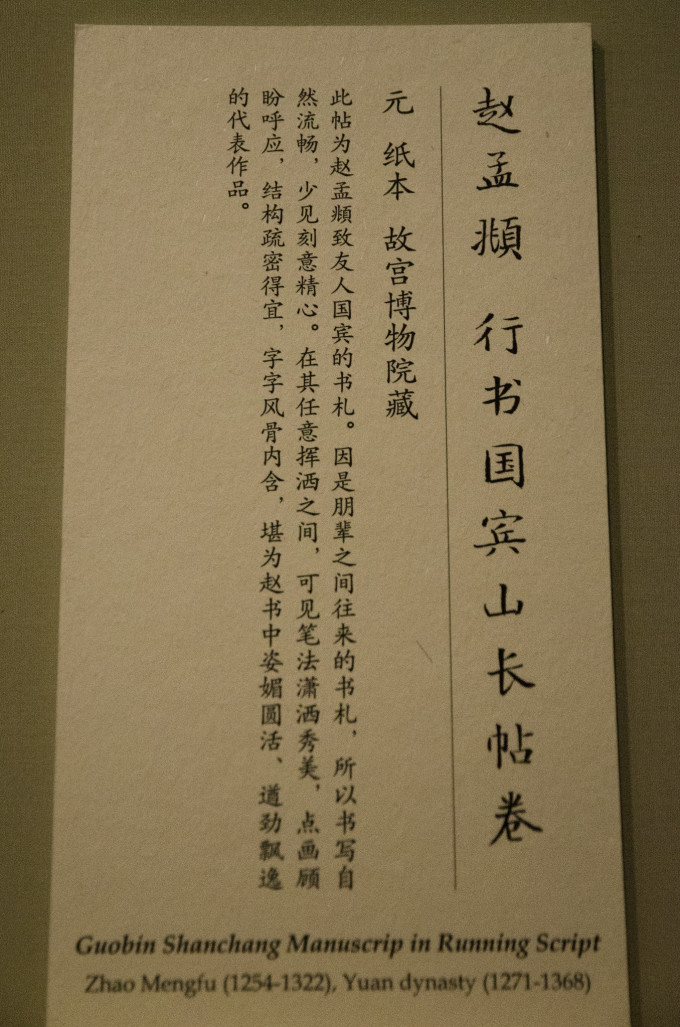 赵孟頫 行书国宾山长帖卷
元 纸本 故宫博物院藏
此帖为赵孟頫致友人国宾的书札。因是朋辈之间往来的书札，所以书写自
然流畅，少见刻意精心。在其任意挥洒之间，可见笔法潇洒秀美，点画顾
盼呼应，结构疏密得宜，字字风骨内含，堪为赵书中姿媚圆活、道劲飘逸
的代表作品。
Guobin Shanchang Manuscrip in Running Script
Zhao Mengfu (1254-1322), Yuan dynasty (1271-1368)